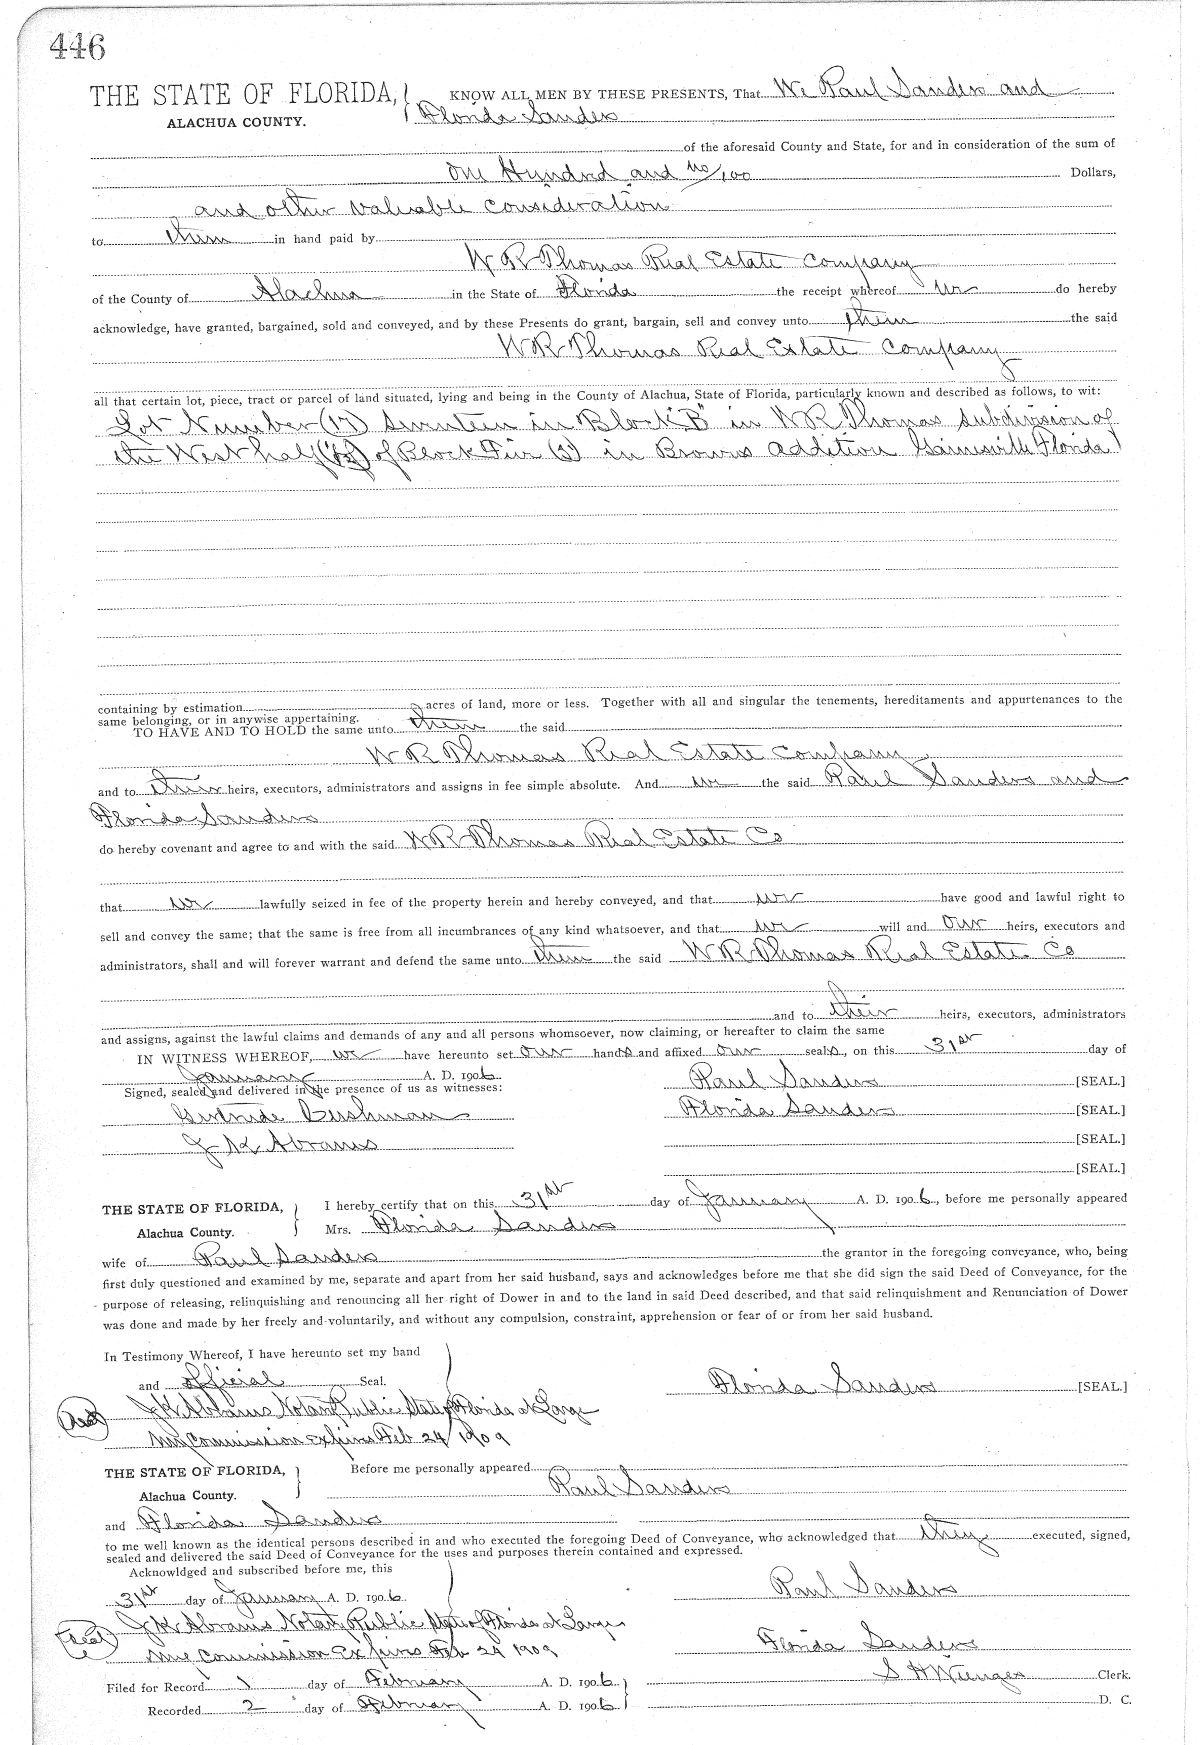 446
THE STATE OF FLORIDA, KNOW ALL MEN BY THESE PRESENTS, That We Paul Sanders and
ALACHUA COUNTY. Florida Sanders
of the aforesaid County and State, for and in consideration of the sum of
One Hundred and no/100 Dollars,
and other valuable consideration
to them in hand paid by
W R Thomas Real Estate Company
of the County of Alachua in the State of Florida the receipt whereof we do hereby
acknowledge, have granted, bargained, sold and conveyed, and by these Presents do grant, bargain, sell and convey unto them the said
W R Thomas Real Estate Company
all that certain lot, piece, tract or parcel of land situated, lying and being in the County of Alachua, State of Florida, particularly known and described as follows, to wit:
Lot Number (17) Seventeen in Block "B" in W R Thomas Subdivision of
the West half (1/2) of Block Five (5) in Browns addition Gainesville Florida
containing by estimation acres of land, more or less. Together with all and singular the tenements, hereditaments and appurtenances to the
same belonging, or in anywise appertaining.
TO HAVE AND TO HOLD the same unto them the said
W R Thomas Real Estate Company
and to their heirs, executors, administrators and assigns in fee simple absolute. And we the said Paul Sanders and
Florida Sanders
do hereby covenant and agree to and with the said W R Thomas Real Estate Co
that we lawfully seized in fee of the property herein and hereby conveyed, and that we have good and lawful right to
sell and convey the same; that the same is free from all incumbrances of any kind whatsoever, and that we will and our heirs, executors and
administrators, shall and will forever warrant and defend the same unto them the said W R Thomas Real Estate Co
and to their heirs, executors, administrators
and assigns, against the lawful claims and demands of any and all persons whomsoever, now claiming, or hereafter to claim the same
IN WITNESS WHEREOF, we have hereunto set our hands and affixed our seals, on this 31st day of
January A. D. 1906 Paul Sanders [SEAL.]
Signed, sealed and delivered in the presence of us as witnesses:
Gertrude Cushman Florida Sanders [SEAL.]
J K Abrams [SEAL.]
[SEAL.]
THE STATE OF FLORIDA, I hereby certify that on this 31st day of January A. D. 1906, before me personally appeared
Alachua County. Mrs. Florida Sanders
wife of Paul Sanders the grantor in the foregoing conveyance, who, being
first duly questioned and examined by me, separate and apart from her said husband, says and acknowledges before me that she did sign the said Deed of Conveyance, for the
purpose of releasing, relinquishing and renouncing all her right of Dower in and to the land in said Deed described, and that said relinquishment and Renunciation of Dower
was done and made by her freely and voluntarily, and without any compulsion, constraint, apprehension or fear of or from her said husband.
In Testimony Whereof, I have hereunto set my hand
and official Seal. Florida Sanders [SEAL.]
J K Abrams Notary Public State of Florida at Large
My Commission expires Feb 24 1909
THE STATE OF FLORIDA, Before me personally appeared
Alachua County. Paul Sanders
and Florida Sanders
to me well known as the identical persons described in and who executed the foregoing Deed of Conveyance, who acknowledged that they executed, signed,
sealed and delivered the said Deed of Conveyance for the uses and purposes therein contained and expressed.
Acknowldged and subscribed before me, this
31st day of January A. D. 1906 Paul Sanders
J K Abrams Notary Public State of Florida at Large
(seal) My Commission Expires Feb 24 1909 Florida Sanders
Filed for Record 1 day of February A. D. 1906 S H Wienges Clerk.
Recorded 2 day of February A. D. 1906 D. C.